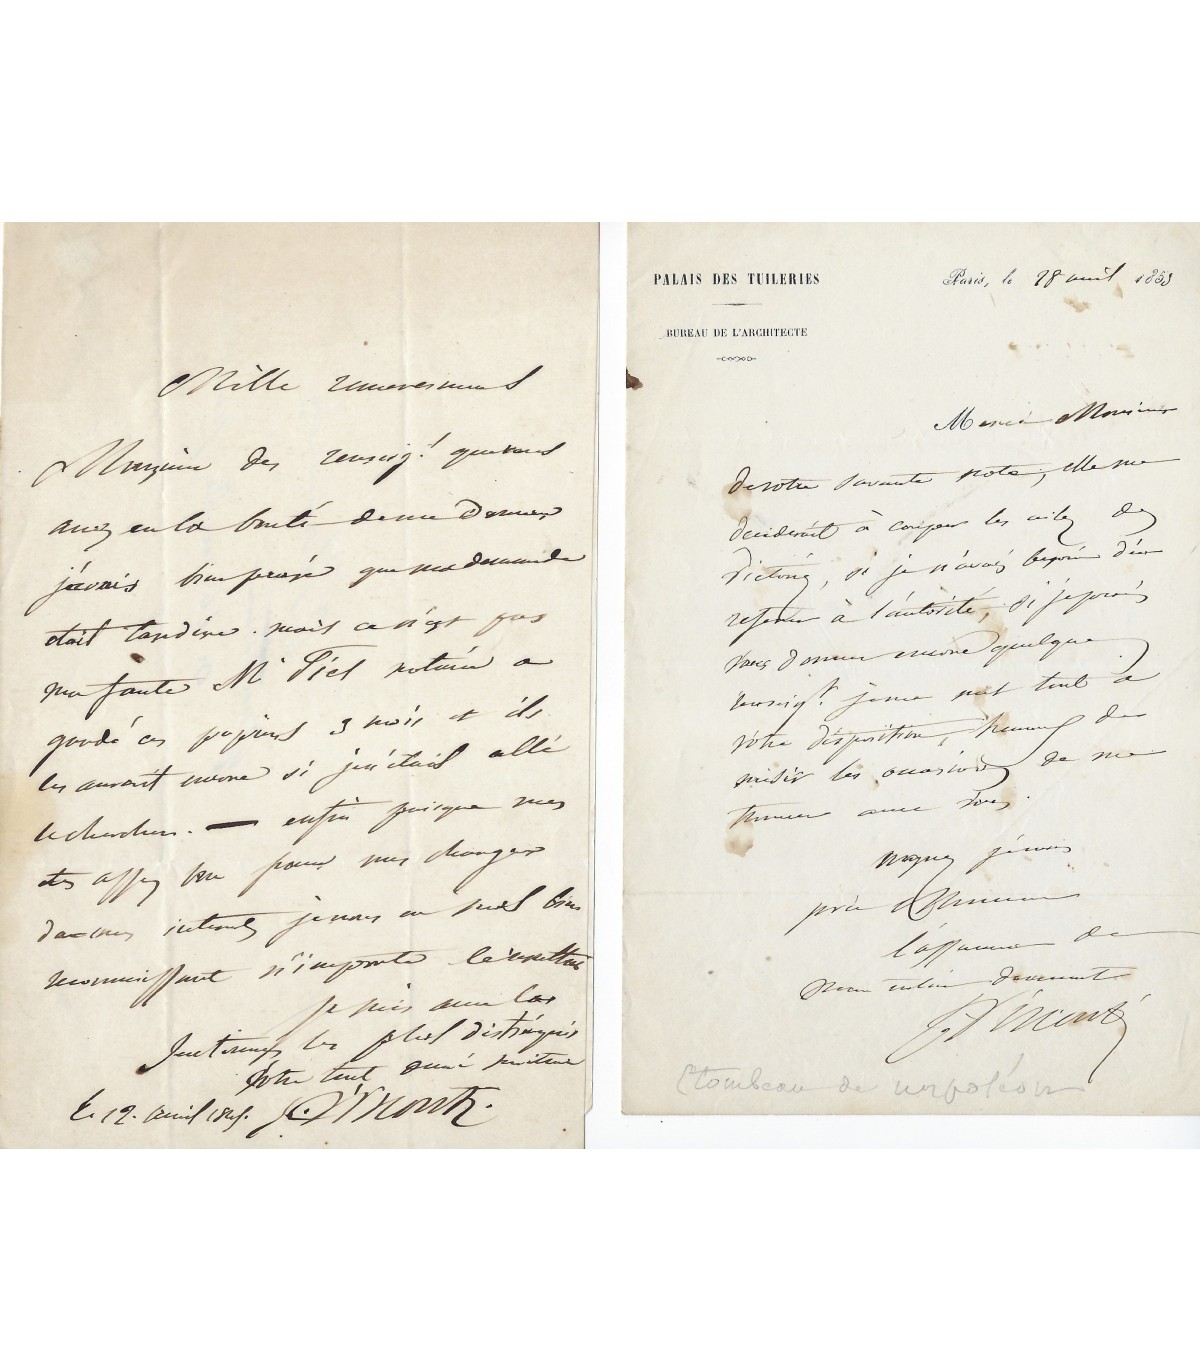 Mille remerciements
Monsieur des renseig.ts que vous
avez eu la bonté de me donner
j'avais bien pensé que ma demande
était tardive. mais ce n'est pas
ma faute Mr notaire a
gardé ces papiers 3 mois et ils
les aurait encore si j'en étais allé
le chercher. — enfin puisque mes
pour me changer
je vous en suis bien
reconnaissant n'importe
je suis avec les
sentiments les plus distingués
Votre tout
le 12. avril 184. Visconti.
PALAIS DES TUILERIES
BUREAU DE L'ARCHITECTE
Paris, le 28 avril 1853
Merci Monsieur
de votre savante note, elle me
déciderait à couper les ailes des
Victoires, si je n'avais besoin d'en
référer à l'autorité, si je pouvais
vous donner encore quelque
renseig.t je me met tout à
votre disposition, heureux de
saisir les occasions de me
trouver avec vous.
l'assurance de
mon entier dévouement
Visconti
(tombeau de napoléon